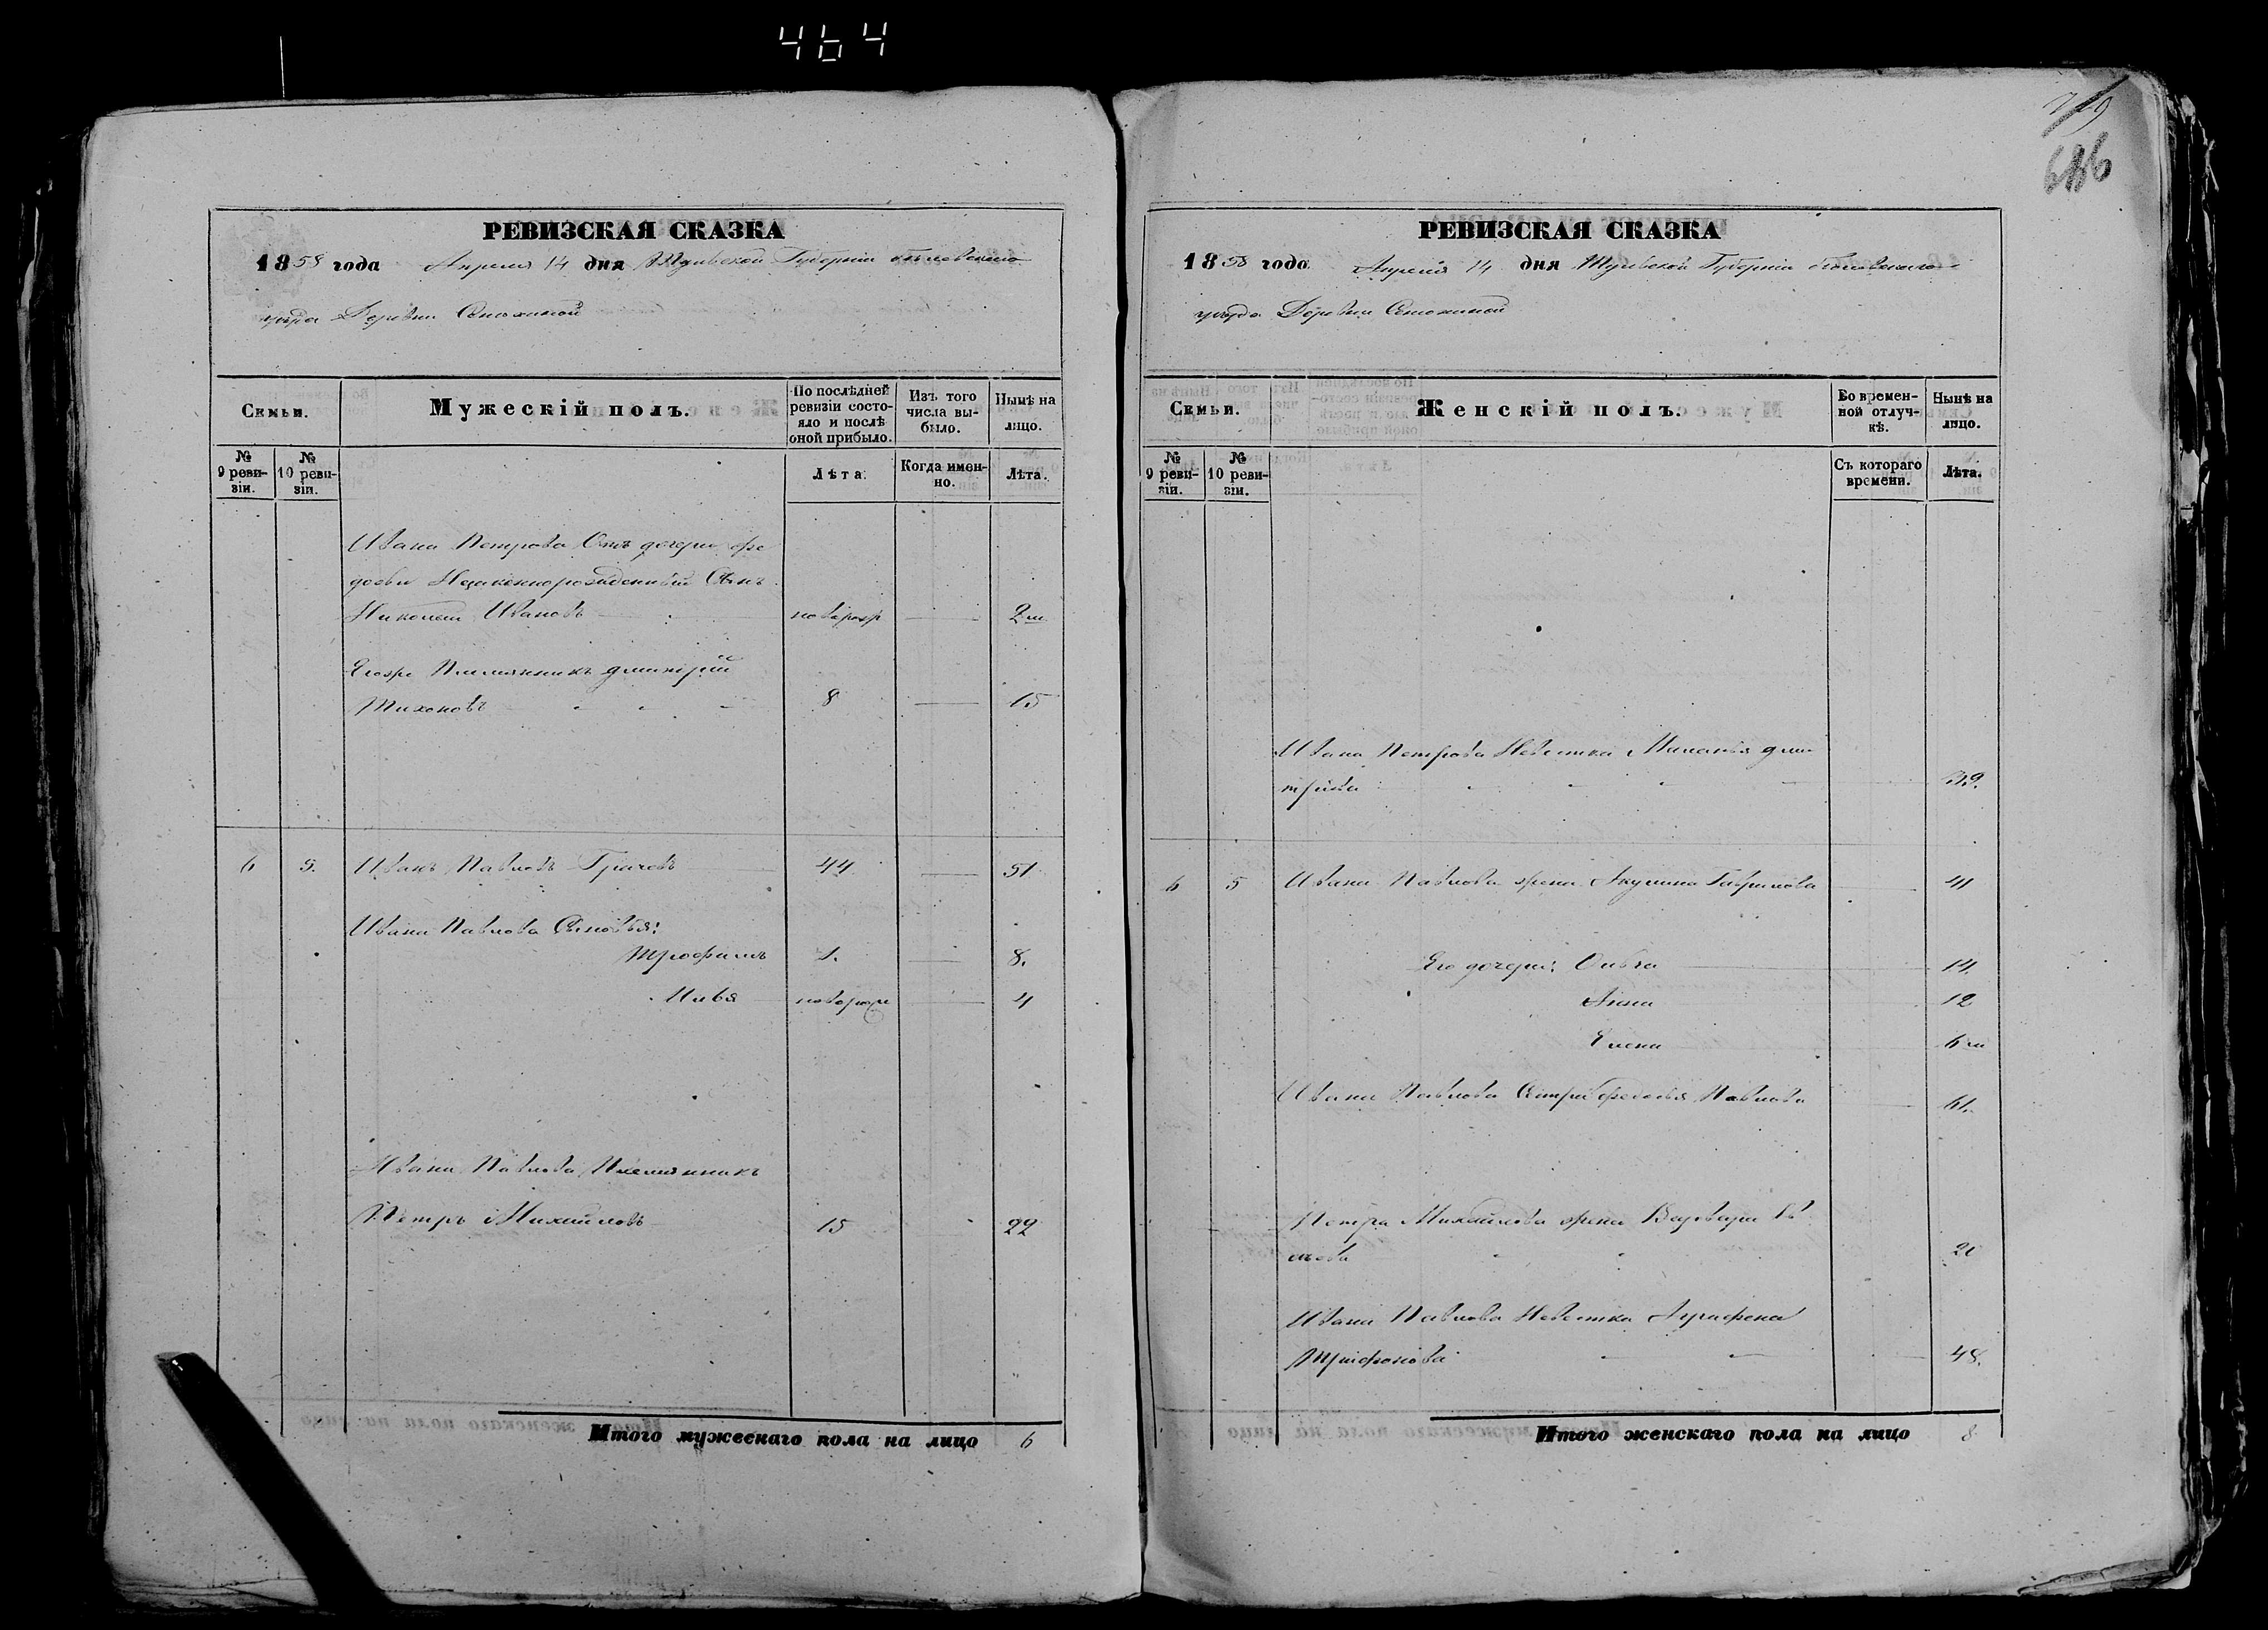 464
РЕВИЗСКАЯ СКАЗКА
1858 года Апреля 14 дня Тульской Губернии Бѣлевскаго
уѣзда Деревни
Семьи.
Мужескій полъ.
По послѣдней ревизіи состояло и послѣ оной прибыло.
Изъ того числа выбыло.
Нынѣ на лицо.
№ 9 ревизіи.
№ 10 ревизіи.
Лѣта.
Когда именно.
Лѣта.
Ивана Петрова Отъ дочери Фе
досьи Незаконнорожденный Сынъ
Николай Ивановъ новорож 2 м
Егоже Племянникъ Дмитрій
Тихоновъ 8 15
6 5. Иванъ Павловъ Грачевъ 44 51
Ивана Павлова Сыновья:
Трофимъ 1. 8.
Илья новорож 4
Ивана Павлова Племянникъ
Петръ Михайловъ 15 22
Итого мужескаго пола на лицо 6
719
РЕВИЗСКАЯ СКАЗКА
1858 года Апреля 14 дня Тульской Губернии Бѣлевскаго
уѣзда Деревни
Семьи.
Женскій полъ.
Во временной отлучкѣ.
Нынѣ на лицо.
№ 9 ревизіи.
№ 10 ревизіи.
Съ котораго времени.
Лѣта.
Ивана Петрова Невестка Миланья Дми
трiева 39.
6 5 Ивана Павлова жена Акулина Гаврилова 41
Его дочери: Ольга 14.
Анна 12
Елена 6 м
Ивана Павлова Сестра Федосья Павлова 61.
Петра Михайлова жена Варвара
20
Ивана Павлова Невестка Аграфена
Трифонова 48.
Итого женскаго пола на лицо 8